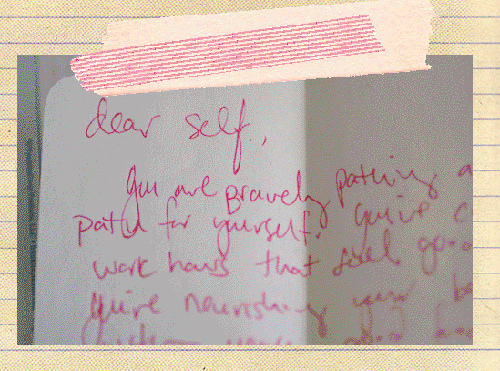 dear self,
you are bravely pathing a
path for yourself. you've c
work hours that feel good
you're nourishing your bo